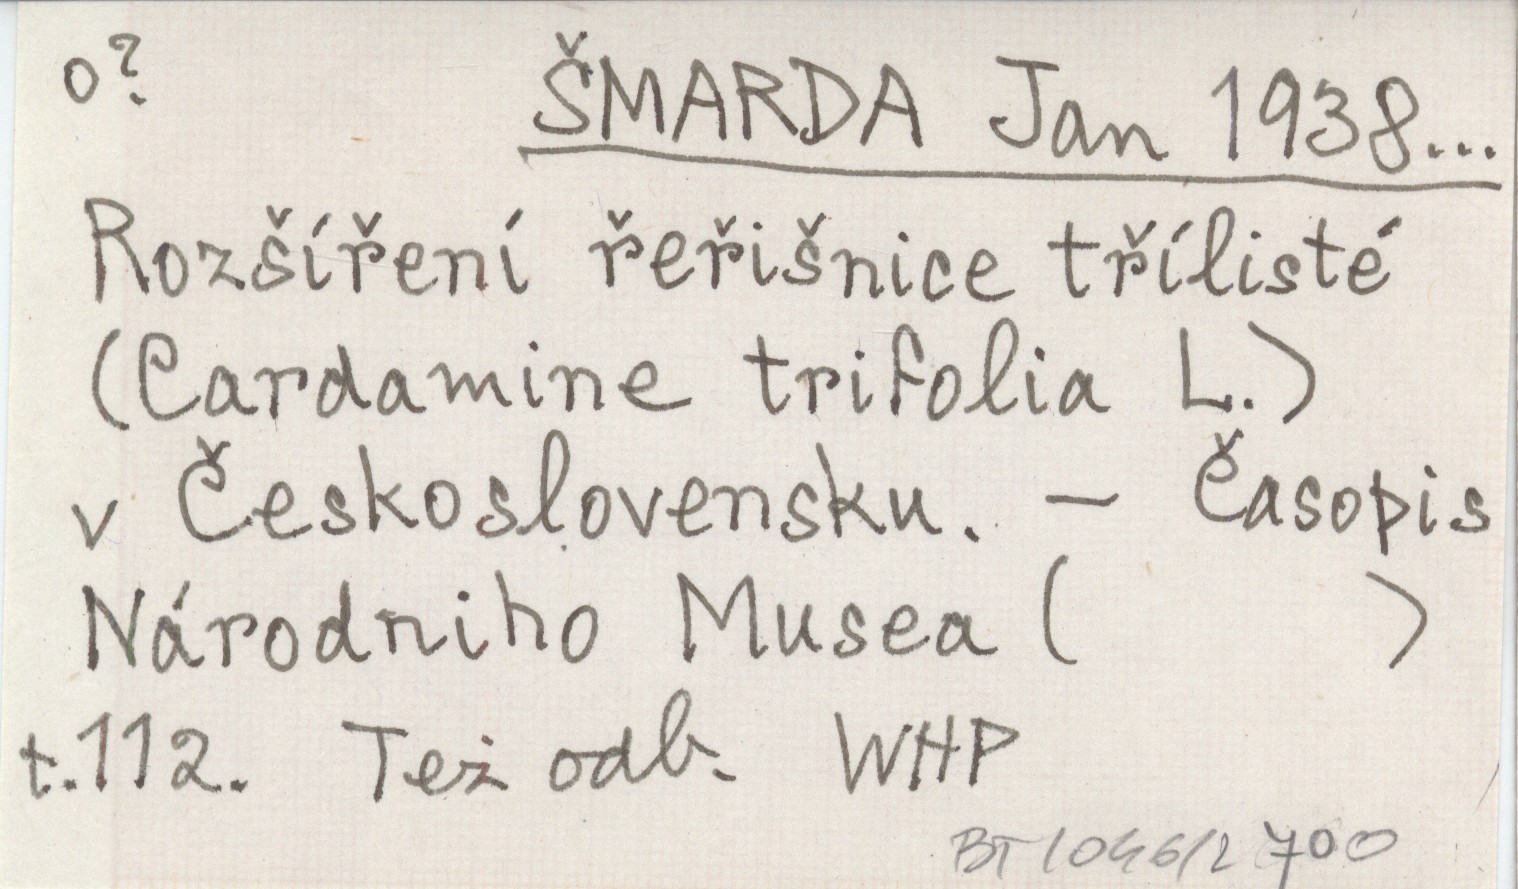 o?
ŠMARDA Jan 1938...
Rozšíření řeřišnice třílisté
(Cardamine trifolia L.)
v Československu. – Časopis
Národniho Musea ( )
t.112. Też odb. WHP
BT 1046/2 700